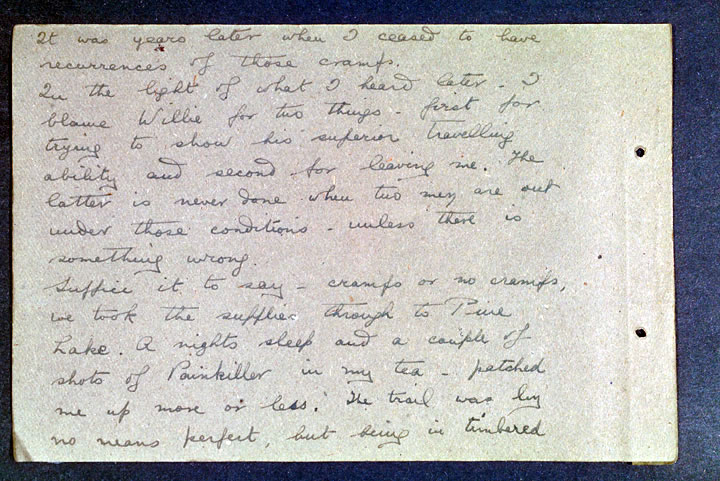 It was years later when I ceased to have
recurrences of those cramps.
In the light of what I heard later - I
blame Willie for two things - first for
trying to show his superior travelling
ability and second for leaving me. The
latter is never done when two men are out
under those conditions - unless there is
something wrong.
Suffice it to say - cramps or no cramps,
we took the supplies through to Pine
Lake. A nights sleep and a couple of
shots of Painkiller in my tea - patched
me up more or less. The trail was by
no means perfect, but being in timbered